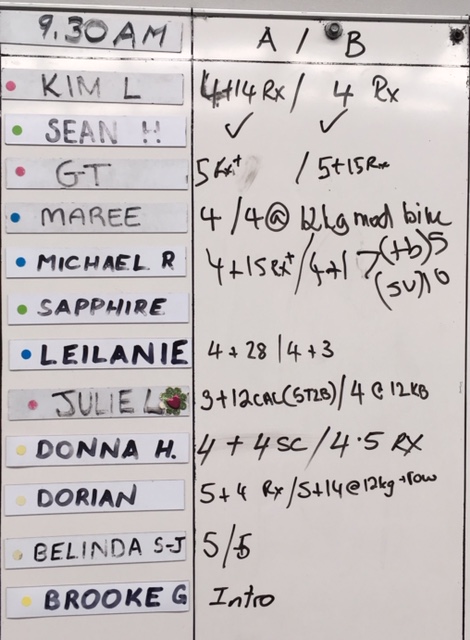 9.30AM A / B
KIM L 4+14 Rx / 4 Rx
SEAN H ✓ ✓
GT 5 Rx+ / 5+15 Rx
MAREE 4 / 4 @ 12kg mod bike
MICHAEL R 4+15 Rx+ / 4+1 (tb) 5
(SU) 10
SAPPHIRE
LEILANIE 4 + 28 | 4 + 3
JULIE L 3+12CAL (5T2B) / 4 @ 12KB
DONNA H. 4 + 4 SC / 4.5 RX
DORIAN 5+4 Rx / 5+14 @ 12kg + row
BELINDA S-J 5/5
BROOKE G Intro